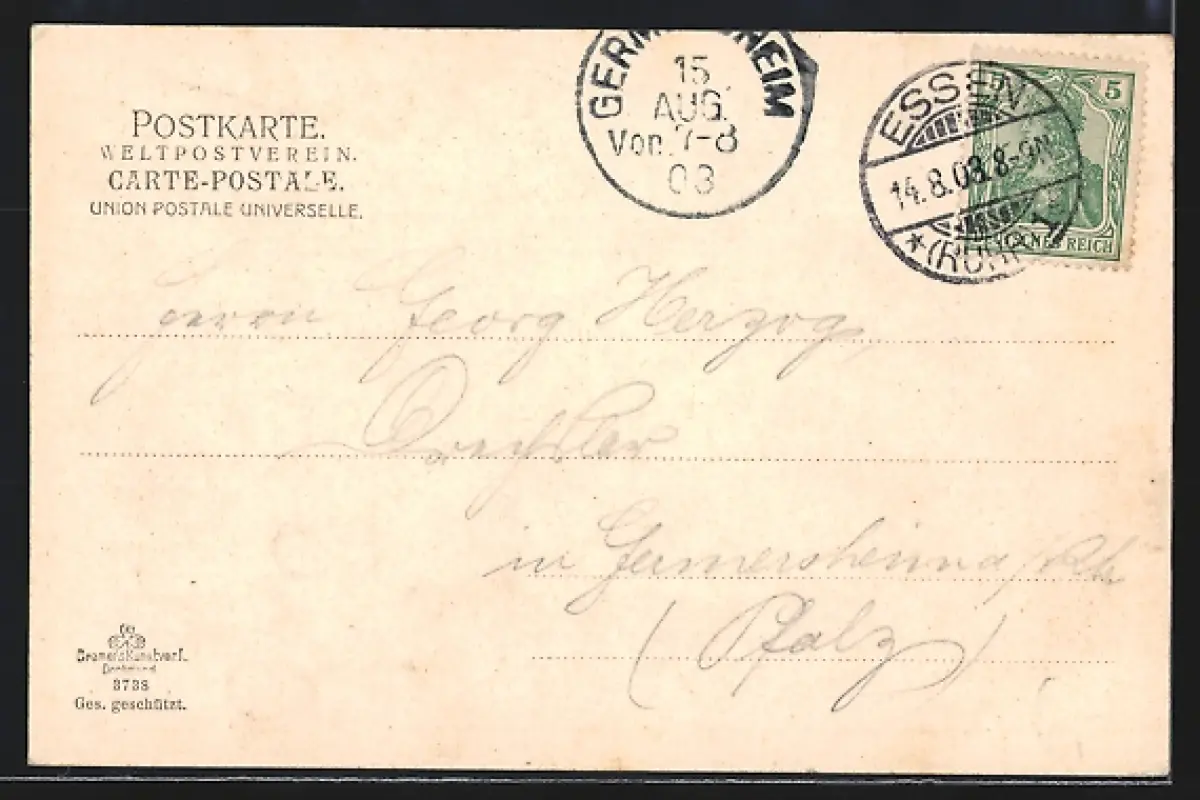 POSTKARTE.
WELTPOSTVEREIN.
CARTE-POSTALE.
UNION POSTALE UNIVERSELLE.
GERM HEIM
15
AUG.
Vor. 7-8
03
ESSEN
14.8.03.8-9N
*(RUHR)
5
REICH
Herrn Georg Herzog,
Drechsler
in Germersheim a/Rh
(Pfalz)
Dortmund
3738
Ges. geschützt.